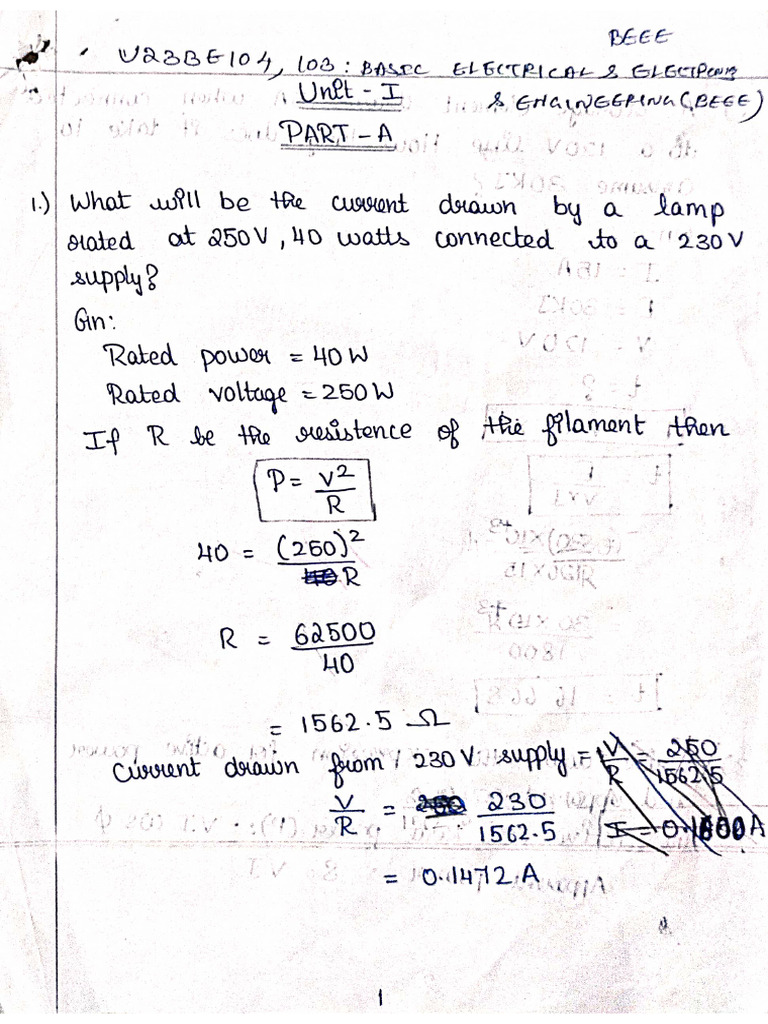 BEEE
U23BE104, 103: BASIC ELECTRICAL & ELECTRONIS
Unit - I & ENGINEERING (BEEE)
PART - A
1.) What will be the current drawn by a lamp
rated at 250V, 40 watts connected to a 230V
supply?
Gn:
Rated power = 40W
Rated voltage = 250W
If R be the resistence of the filament then
P = V²/R
40 = (250)²/R
R = 62500/40
= 1562.5 Ω
Current drawn from 230V supply = V/R = 250/1562.5
V/R = 230/1562.5 I = 0.1600A
= 0.1472A
1